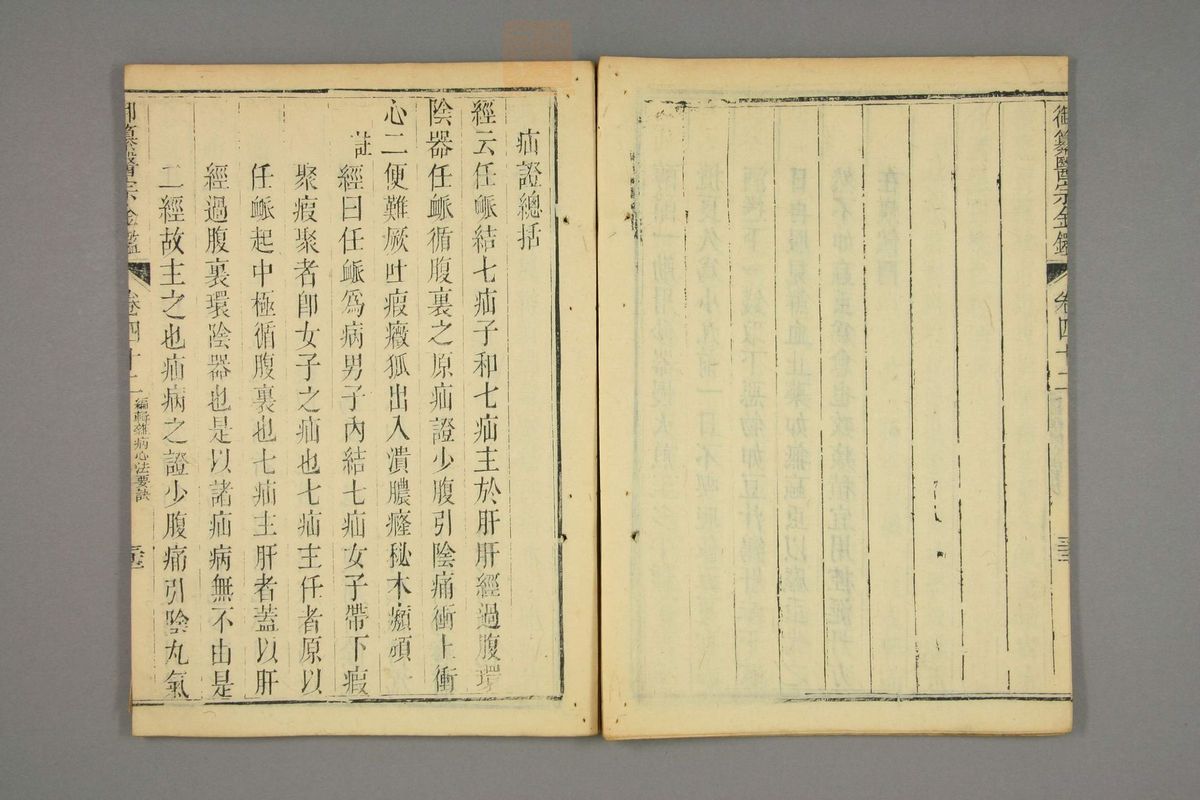 御纂醫宗金鑑 卷四十二
疝證總括
經云任脈結七疝子和七疝主於肝肝經過腹環
陰器任脈循腹裏之原疝證少腹引陰痛衝上衝
心二便難厥吐瘕癥狐出入潰膿癃秘木㿗頑
註
經曰任脈爲病男子內結七疝女子帶下瘕
聚瘕聚者卽女子之疝也七疝主任者原以
任脈起中極循腹裏也七疝主肝者蓋以肝
經過腹裏環陰器也是以諸疝病無不由是
二經故主之也疝病之證少腹痛引陰丸氣
御纂醫宗金鑑 卷四十二 編輯雜病心法要訣